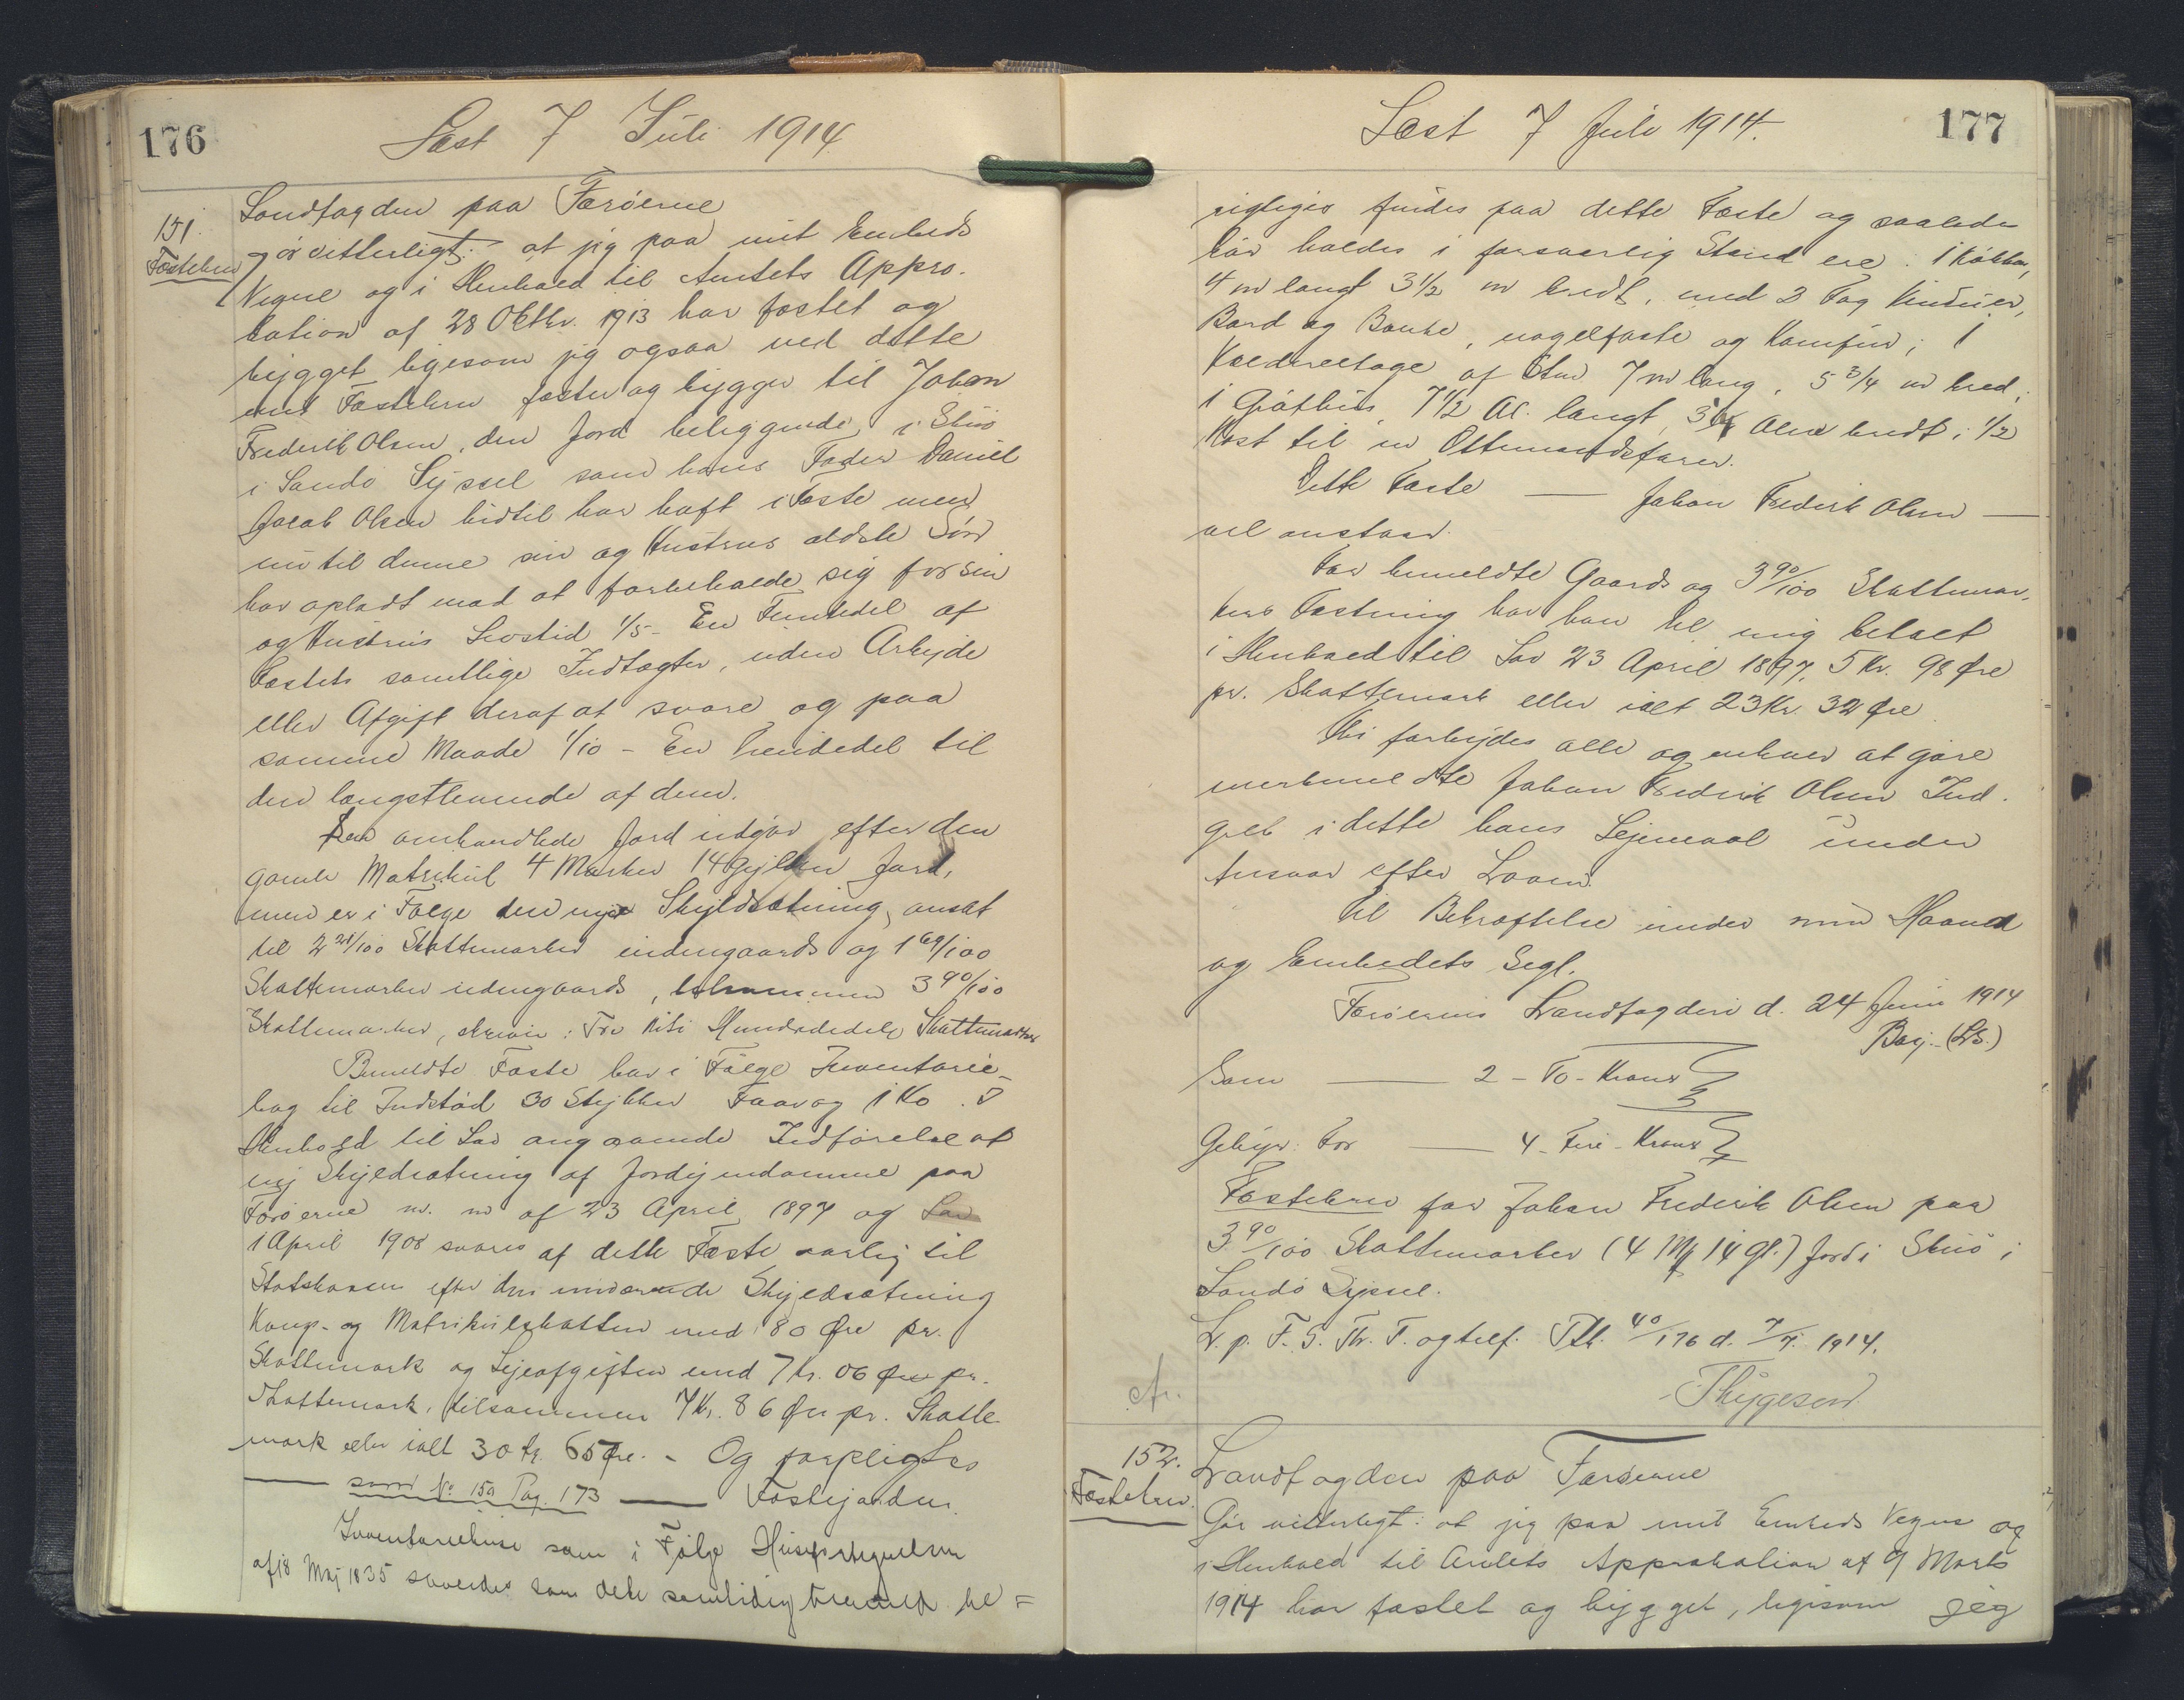 176
Læst 7 Juli 1914
151.
Fæstebrev
Landfogden paa Færöerne
gör vitterligt: at jeg paa mit Embeds
Vegne og i Henhold til Amtets Appro-
bation af 28 Oktbr. 1913 har fæstet og
bygget ligesom jeg ogsaa ved dette
mit Fæstebrev fæster og bygger til Johan
Frederik Olsen, den Jord beliggende i Skuö
i Sandö Syssel som hans Fader Daniel
Jacob Olsen hidtil har haft i Fæste men
nu til denne sin og Hustrus ældste Sön
har opladt mod at forbeholde sig for sin
og Hustrus Livstid 1/5 - En Femtedel af
Fæstets samtlige Indtægter, uden Arbejde
eller Afgift deraf at svare og paa
samme Maade 1/10 - En Tiendedel til
den længstlevende af dem.
Den omhandlede Jord udgör efter den
gamle Matrikul 4 Marker 14 Gylden Jord,
men er i Fölge den nye Skyldsætning ansat
til 2 21/100 Skattemarker indengaards og 1 69/100
Skattemarker udengaards, tilsammen 3 90/100
Skattemarker, skriver: Tre Niti Hundrededele Skattemarker
Bemeldte Fæste har i Fölge Inventarie-
bog til Indstöd 30 Stykker Faar og 1 Ko. I
Henhold til Lov angaaende Indförelse af
ny Skyldsætning af Jordejendomme paa
Færöerne m. m af 23 April 1897 og Lov
1 April 1908 svares af dette Fæste aarlig til
Statskassen efter den nuværende Skyldsætning
Konge- og Matrikulskatten med 80 Øre pr.
Skattemark og Lejeafgiften med 7 Kr. 06 Øre pr.
Skattemark, tilsammen 7 Kr. 86 Øre pr. Skatte-
mark eller ialt 30 Kr. 65 Øre. - Og forpligtes
— som No 150 Pag. 173 — Fæstejorden.
Inventariehuse som i Fölge
af 18 Maj 1835 saavelsom dette samtidig
177
Læst 7 Juli 1914.
rigtiges findes paa dette Fæste og saaledes
bör holdes i forsvarlig Stand ere: 1 Kökken,
4 m langt 3 1/2 m bredt, med 2 Fag Vinduer,
Bord og Bænke, nagelfaste og Komfur; 1
af Stue 7 m lang, 5 3/4 m bred;
1 Gröthus 7 1/2 Al. langt, Alen bredt; 1/2
Nöst til en Ottemandsfarer.
Dette Fæste — Johan Frederik Olsen —
vel anstaar.
For bemeldte Gaards og 3 90/100 Skattemar-
kers Fæstning har han til mig betalt
i Henhold til Lov 23 April 1897, 5 Kr. 98 Øre
pr. Skattemark eller ialt 23 Kr. 32 Øre
Thi forbydes alle og enhver at göre
merbemeldte Johan Frederik Olsen Ind-
greb i dette hans Lejemaal under
Ansvar efter Loven.
Til Bekræftelse under min Haand
og Embedets Segl.
Færöernes Landfogderi d. 24 Juni 1914
Bærj. (LS.)
Som — 2 - To - Kroner
Gebyr: for — 4 - Fire - Kroner
Fæstebrev for Johan Frederik Olsen paa
3 90/100 Skattemarker (4 Mk 14 Gl.) Jord i Skuö i
Sandö Syssel.
L. p. F. S. Th. T. og tilf. Ptk. 40/176 d. 7/7. 1914.
Thygesen
152.
Fæstebrev.
Landfogden paa Færöerne
Gör vitterligt: at jeg paa mit Embeds Vegne og
i Henhold til Amtets Approbation af 9 Marts
1914 har fæstet og bygget, ligesom jeg